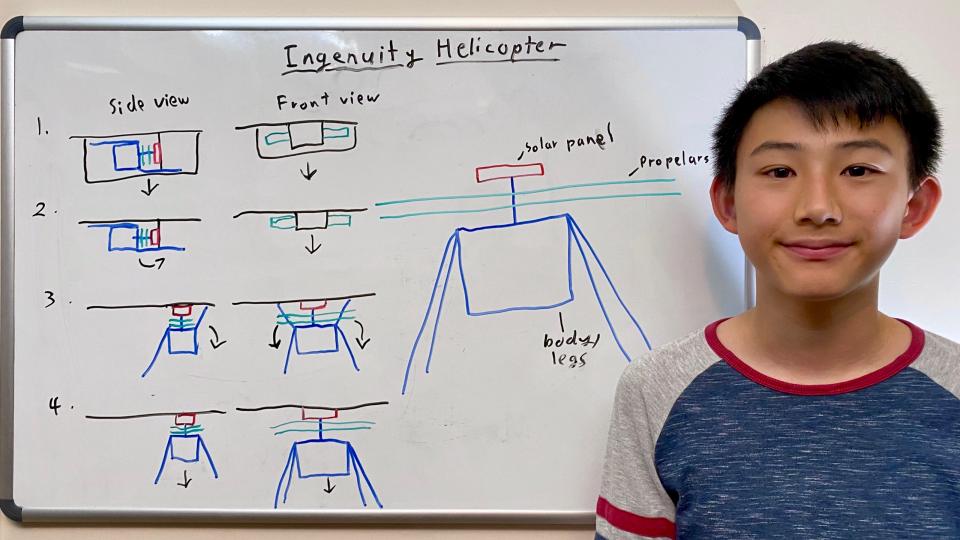 Ingenuity Helicopter
Side view
Front view
1.
2.
3.
4.
solar panel
propelars
body/
legs